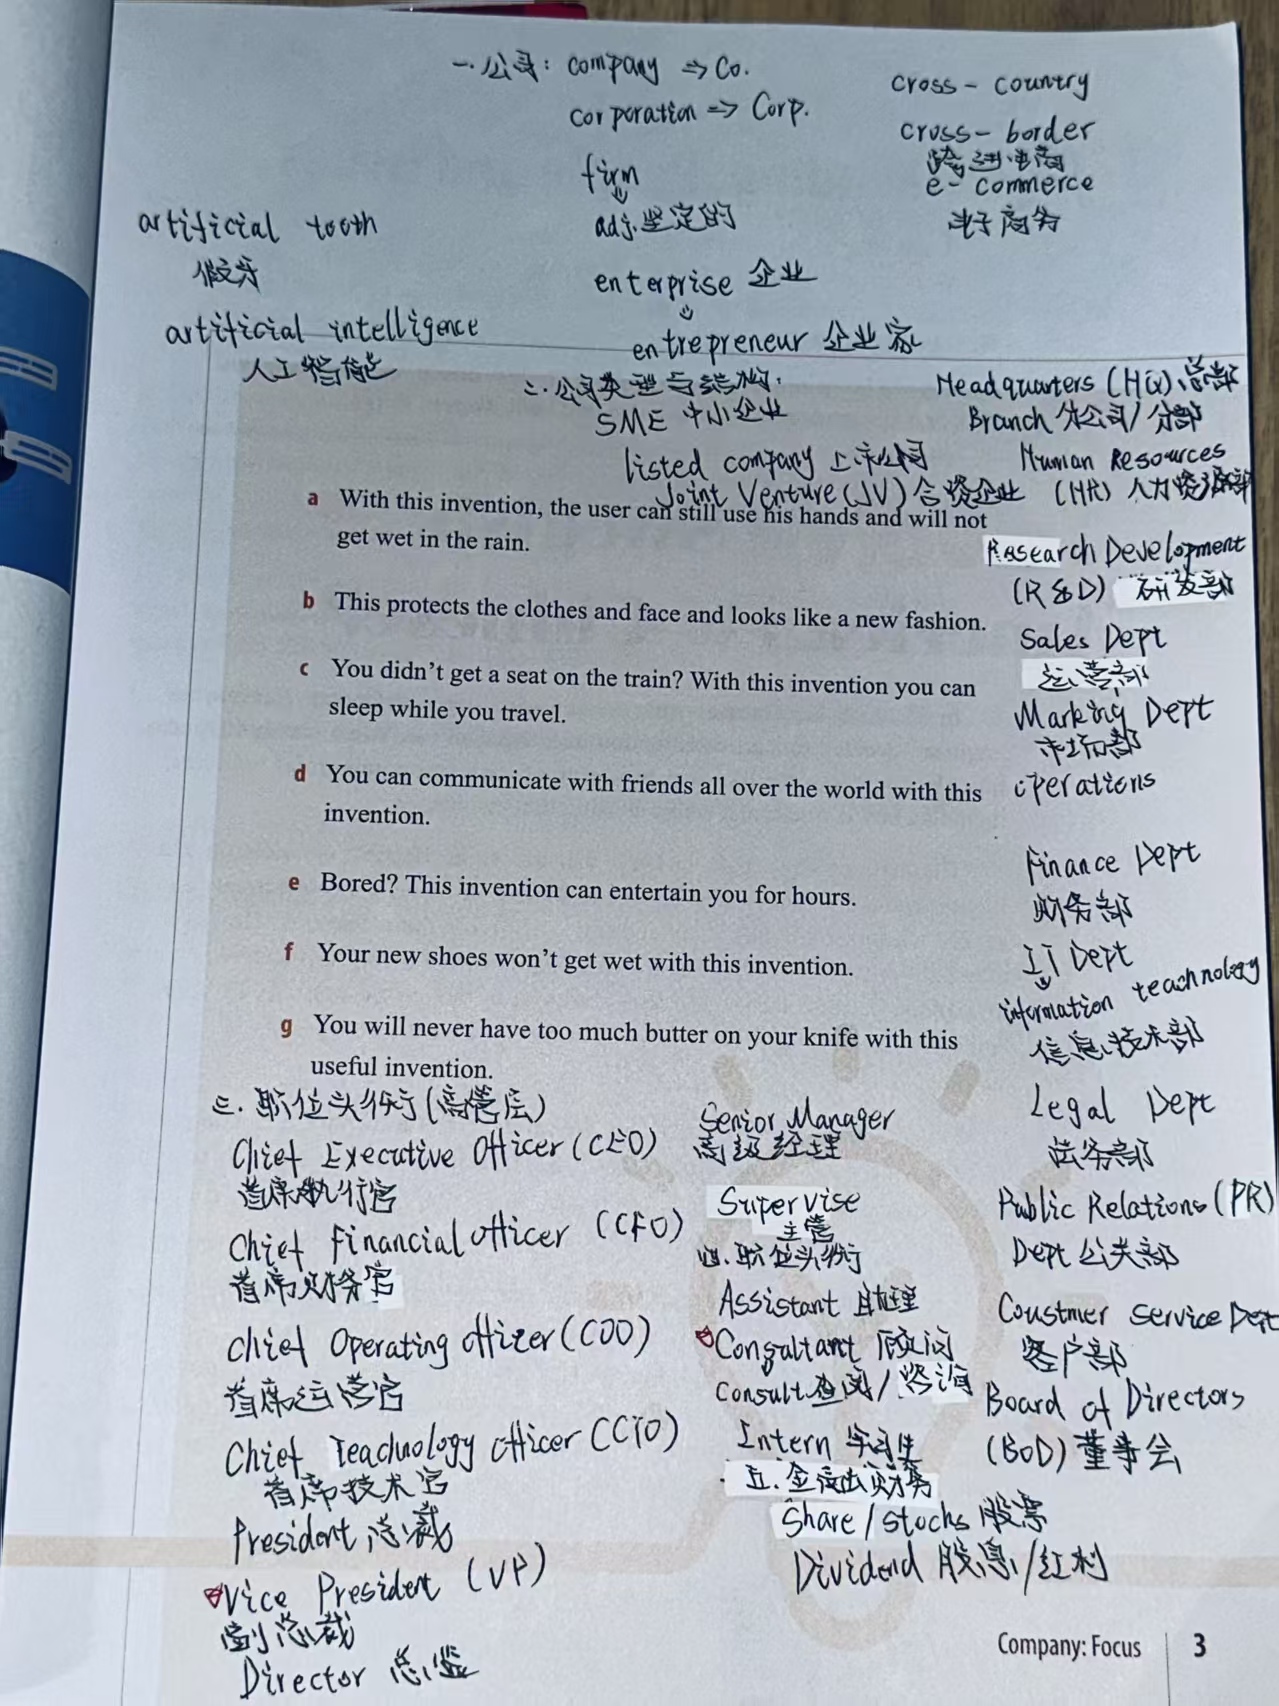 一.公司: company ⇒ Co.
corporation => Corp.
firm
adj.坚定的
enterprise 企业
entrepreneur 企业家
cross-country
cross-border
e-commerce
电子商务
artificial tooth
假牙
artificial intelligence
人工智能
二.公司类型与结构:
SME 中小企业
listed company 上市公司
Joint Venture(JV)合资企业
Headquarters (HQ)总部
Branch 分公司/分部
Human Resources
(HR) 人力资源部
Research Development
(R&D) 研发部
Sales Dept
运营部
Marking Dept
市场部
operations
Finance Dept
财务部
IT Dept
information teachnology
信息技术部
Legal Dept
法务部
Public Relations(PR)
Dept 公关部
Coustmer Service Dept
客户部
Board of Directors
(BoD)董事会
a With this invention, the user can still use his hands and will not
get wet in the rain.
b This protects the clothes and face and looks like a new fashion.
c You didn't get a seat on the train? With this invention you can
sleep while you travel.
d You can communicate with friends all over the world with this
invention.
e Bored? This invention can entertain you for hours.
f Your new shoes won't get wet with this invention.
g You will never have too much butter on your knife with this
useful invention.
三.职位头衔(高管层)
Chief Executive Officer(CEO)
首席执行官
Chief Financial officer (CFO)
首席财务官
Chief Operating officer(COO)
首席运营官
Chief Teachnology officer(CTO)
首席技术官
President 总裁
Vice President (VP)
副总裁
Director 总监
Senior Manager
高级经理
Supervise
主管
四.职位头衔
Assistant 助理
Consultant 顾问
Consult查阅/咨询
Intern 实习生
Share/stocks 股票
Dividend 股息/红利
Company: Focus 3